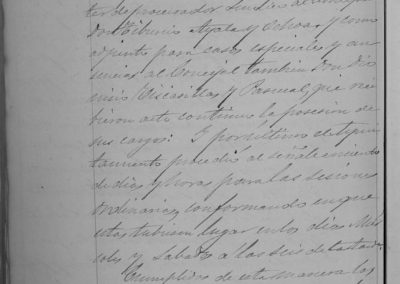 ter de procurador Sindico al Concejal
Don Tiburcio Ayala y Ochoa, y como
adjunto para casos especiales y au
sencias al Concejal tambien Don Dio
nisio Viscasillas y Pascual, que reci
bieron acto continuo la posesion de
sus cargos: Y por ultimo el Ayun
tamiento procedió al señalamiento
de dias y horas para las sesiones
ordinarias, conformando en que
estas tubiesen lugar en los dias Mier
coles y Sabados a las seis de la tarde.
Cumplidos de esta manera los